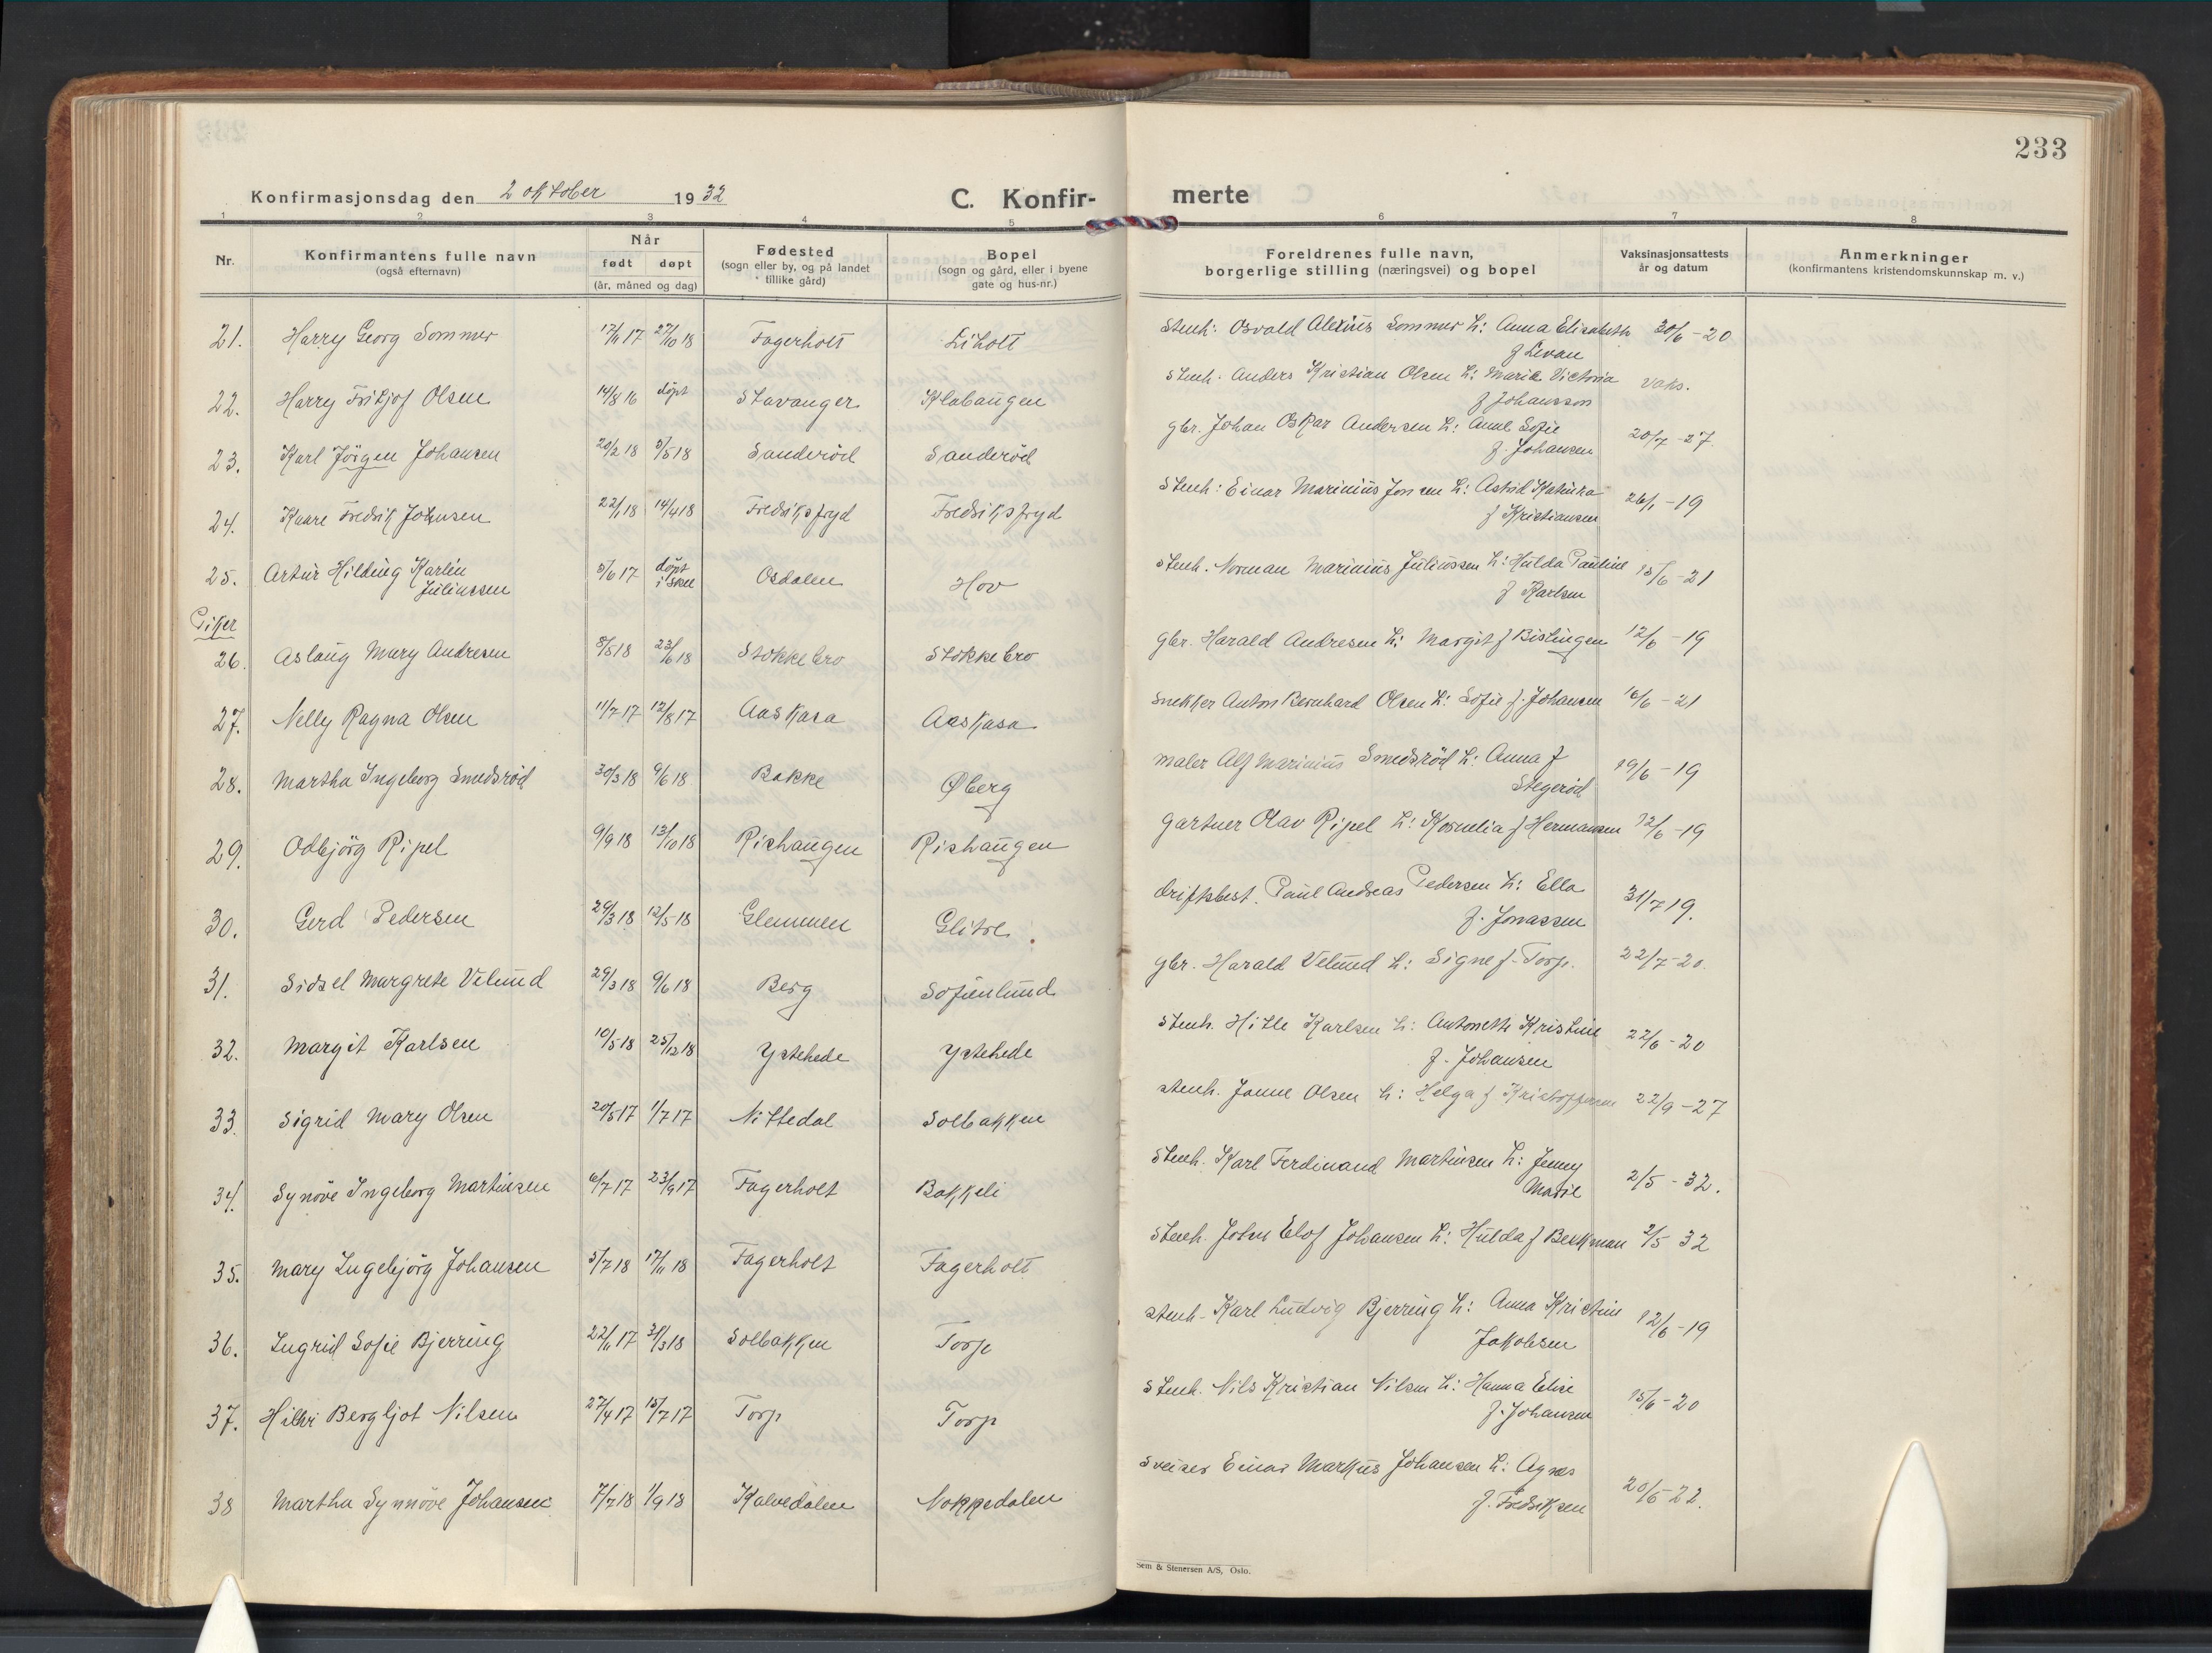 233
Konfirmasjonsdag den 2 oktober 1932
C. Konfir-
merte
1 2 3 4 5 6 7 8
Nr.
Konfirmantens fulle navn
(også efternavn)
Når
født døpt
(år, måned og dag)
Fødested
(sogn eller by, og på landet
tillike gård)
Bopel
(sogn og gård, eller i byene
gate og hus-nr.)
Foreldrenes fulle navn,
borgerlige stilling (næringsvei) og bopel
Vaksinasjonsattests
år og datum
Anmerkninger
(konfirmantens kristendomskunnskap m. v.)
21. Harry Georg Sommer 17/11 17 27/10 18 Fagerholt Liholt Stenh: Osvald Alexius Sommer h: Anna Elisabeth 30/6 - 20
f Levan
22. Harry Fritjof Olsen 14/8 16 döpt Stavanger Klabaugen Stenh. Anders Kristian Olsen h: Marie Victoria vaks.
f Johansson
23. Karl Jörgen Johansen 20/2 18 5/5 18 Sanderöd Sanderöd gbr. Johan Oskar Andersen h: Anne Sofie 20/7 - 27.
f. Johansen
24. Kaare Fredrik Johnsen 22/1 18 14/4 18 Fredriksfryd Fredriksfryd Stenh: Einar Marinius Jonsen h: Astrid Katinka 26/1 - 19
f Kristiansen
25. Artur Hilding Karlin 5/6 17 döpt Osdalen Hov Stenh. Norman Marinius Juliussen h: Hulda Pauline 15/6 - 21
Juliussen i Skee f Karlsen
Piker
26. Aslaug Mary Andresen 8/5 18 23/6 18 Stokkebro Stokkebro gbr. Harald Andresen h: Margit f Bislingen 12/6 - 19
27. Nelly Ragna Olsen 11/7 17 12/8 17 Aaskasa Aaskasa Snekker Anton Bernhard Olsen h: Sofie f. Johansen 16/6 - 21
28. Martha Ingeborg Smedsröd 30/3 18 9/6 18 Bakke Øberg maler Alf Marinius Smedsröd h: Anna f 19/6 - 19
Stegeröd
29. Odbjörg Ripel 9/9 18 13/10 18 Rishaugen Rishaugen Gartner Olav Ripel h: Kornelia f Hermansen 12/6 - 19
30. Gerd Pedersen 29/3 18 12/5 18 Glemmen Glitre driftsbest. Paul Andreas Pedersen h: Ella 31/7 19.
f. Jonassen
31. Sidsel Margrete Velund 29/3 18 9/6 18 Berg Sofienlund gbr. Harald Velund h: Signe f. Torp. 22/7 - 20.
32. Margit Karlsen 10/5 18 25/12 18 Ystehede Ystehede Stenh. Hitle Karlsen h: Antonette Kristine 22/6 - 20
f. Johansen
33. Sigrid Mary Olsen 20/5 17 1/7 17 Nittedal Solbakken stenh. Janne Olsen h: Helga f Kristoffersen 22/9 - 27
34. Synöve Ingeborg Martinsen 6/7 17 23/9 17 Fagerholt Bakkeli Stenh. Karl Ferdinand Martinsen h: Jenny 2/5 - 32.
Marie
35. Mary Ingebjörg Johansen 5/7 18 17/11 18 Fagerholt Fagerholt Stenh. Johs Elof Johansen h: Hulda f Beckman 2/5 32
36. Ingrid Sofie Bjerring 22/11 17 31/3 18 Solbakken Torp stenh - Karl Ludvig Bjerring h: Anna Kristine 12/6 - 19
Jakobsen
37. Hilhi Bergljot Nilsen 27/4 17 15/7 17 Torp Torp Stenh. Nils Kristian Nilsen h: Hanna Elise 15/6 - 20
f. Johansen
38 Martha Synnöve Johansen 7/7 18 1/9 18 Kalvedalen Nokkedalen Sveiser Einar Markus Johansen h: Agnes 20/6 - 22.
f. Fredriksen
Sem & Stenersen A/S, Oslo.